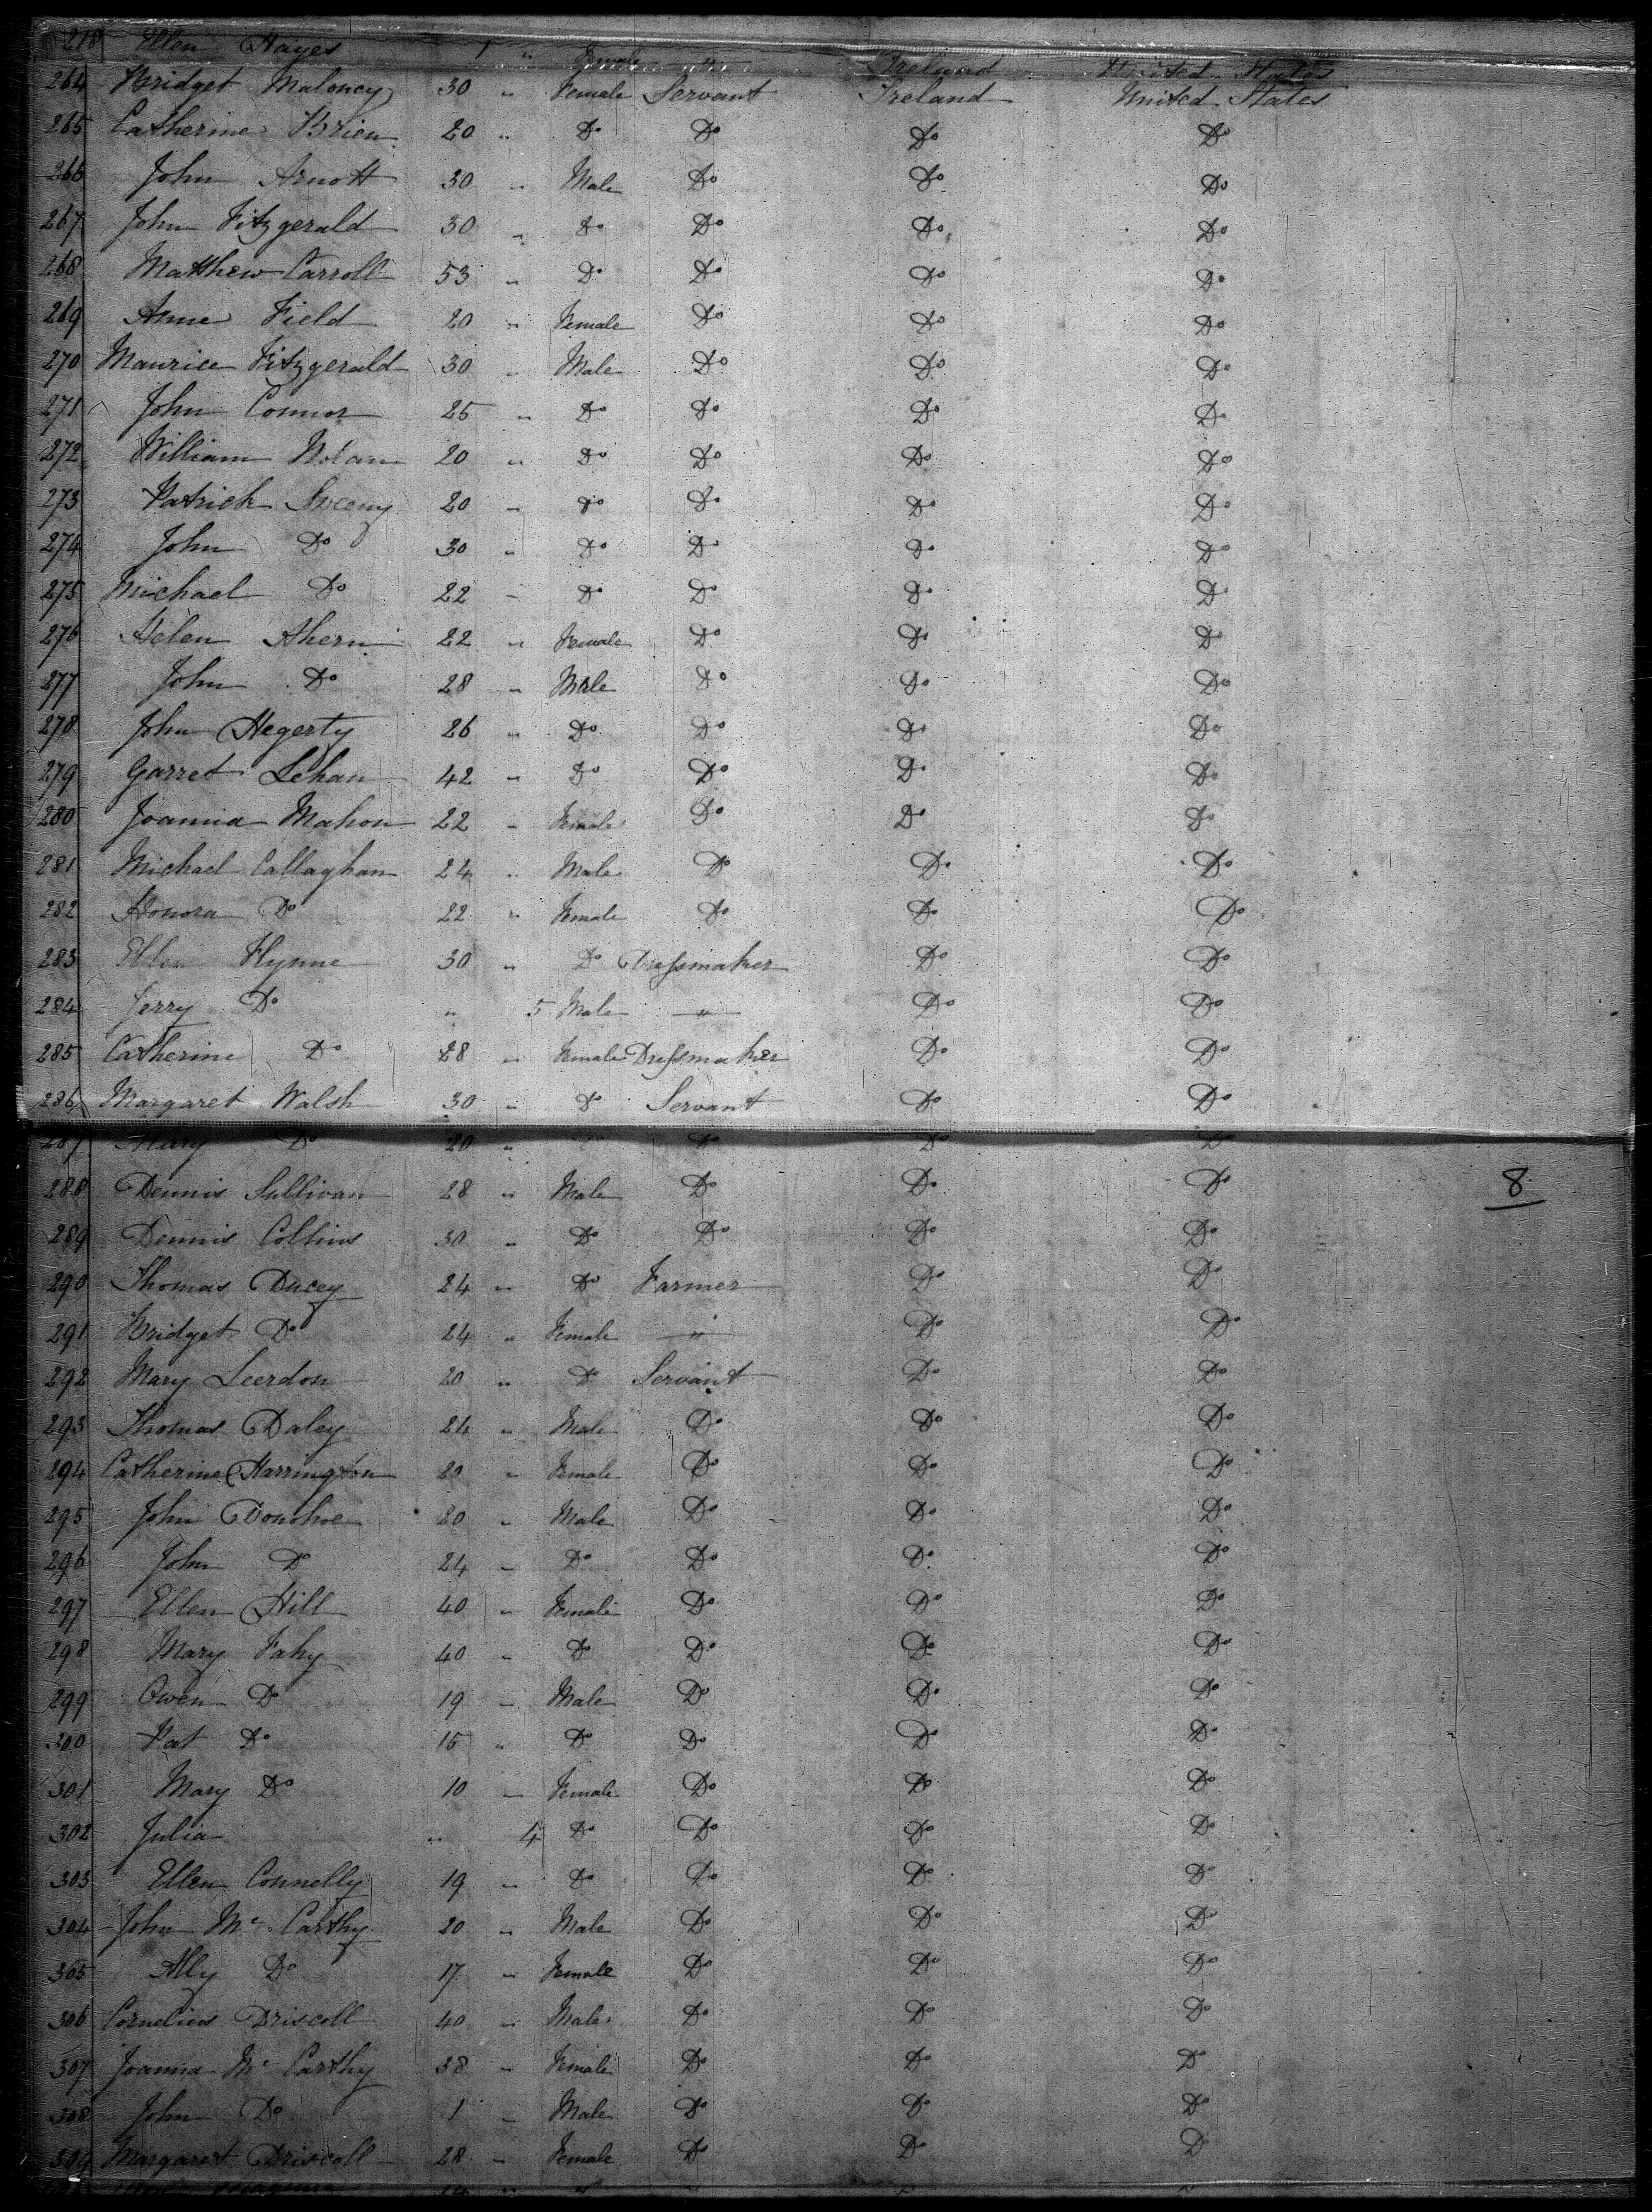 218 Ellen Hayes 1 " Female " Ireland United States
264 Bridget Maloney 30 " Female Servant Ireland United States
265 Catherine Brien 20 " Do Do Do Do
266 John Arnott 30 " Male Do Do Do
267 John Fitzgerald 30 " Do Do Do Do
268 Matthew Carroll 53 " Do Do Do Do
269 Anne Field 20 " Female Do Do Do
270 Maurice Fitzgerald 30 " Male Do Do Do
271 John Connor 25 " Do Do Do Do
272 William Nolan 20 " Do Do Do Do
273 Patrick Sweeny 20 " Do Do Do Do
274 John Do 30 " Do Do Do Do
275 Michael Do 22 " Do Do Do Do
276 Helen Ahern 22 " Female Do Do Do
277 John Do 28 " Male Do Do Do
278 John Hegerty 26 " Do Do Do Do
279 Garret Lehan 42 " Do Do Do Do
280 Joanna Mahon 22 " Female Do Do Do
281 Michael Callaghan 24 " Male Do Do Do
282 Honora Do 22 " Female Do Do Do
283 Ellen Flynne 30 " Do Dressmaker Do Do
284 Jerry Do " 5 Male " Do Do
285 Catherine Do 28 " Female Dressmaker Do Do
286 Margaret Walsh 30 " Do Servant Do Do
287 Mary Do 20 " Do Do Do
288 Dennis Sullivan 28 " Male Do Do Do 8
289 Dennis Collins 30 " Do Do Do Do
290 Thomas Ducey 24 " Do Farmer Do Do
291 Bridget Do 24 " Female " Do Do
292 Mary Leerdon 20 " Do Servant Do Do
293 Thomas Daley 24 " Male Do Do Do
294 Catherine Harrington 20 " Female Do Do Do
295 John Donohoe 20 " Male Do Do Do
296 John Do 24 " Do Do Do Do
297 Ellen Hill 40 " Female Do Do Do
298 Mary Fahy 40 " Do Do Do Do
299 Owen Do 19 " Male Do Do Do
300 Pat Do 15 " Do Do Do Do
301 Mary Do 10 " Female Do Do Do
302 Julia " 4 Do Do Do Do
303 Ellen Connelly 19 " Do Do Do Do
304 John Mc Carthy 20 " Male Do Do Do
305 Ally Do 17 " Female Do Do Do
306 Cornelius Driscoll 40 " Male Do Do Do
307 Joanna Mc Carthy 38 " Female Do Do Do
308 John Do 1 " Male Do Do Do
309 Margaret Driscoll 28 " Female Do Do Do